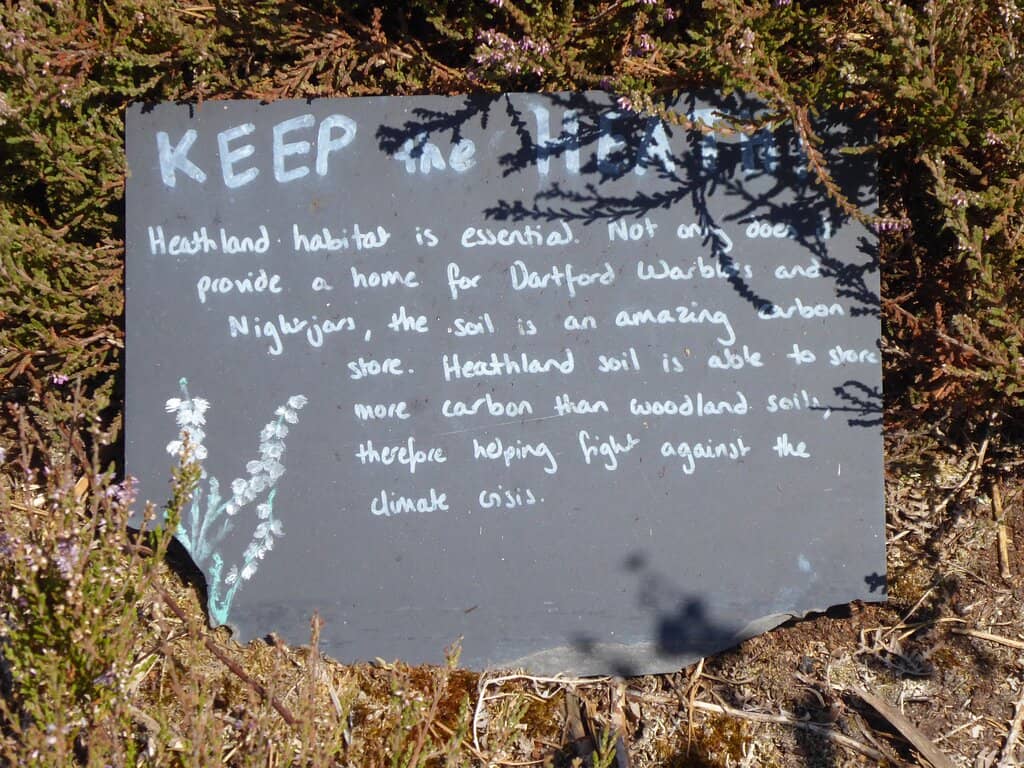 KEEP the HEATH
Heathland habitat is essential. Not only does it
provide a home for Dartford Warblers and
Nightjars, the soil is an amazing carbon
store. Heathland soil is able to store
more carbon than woodland soils,
therefore helping fight against the
climate crisis.